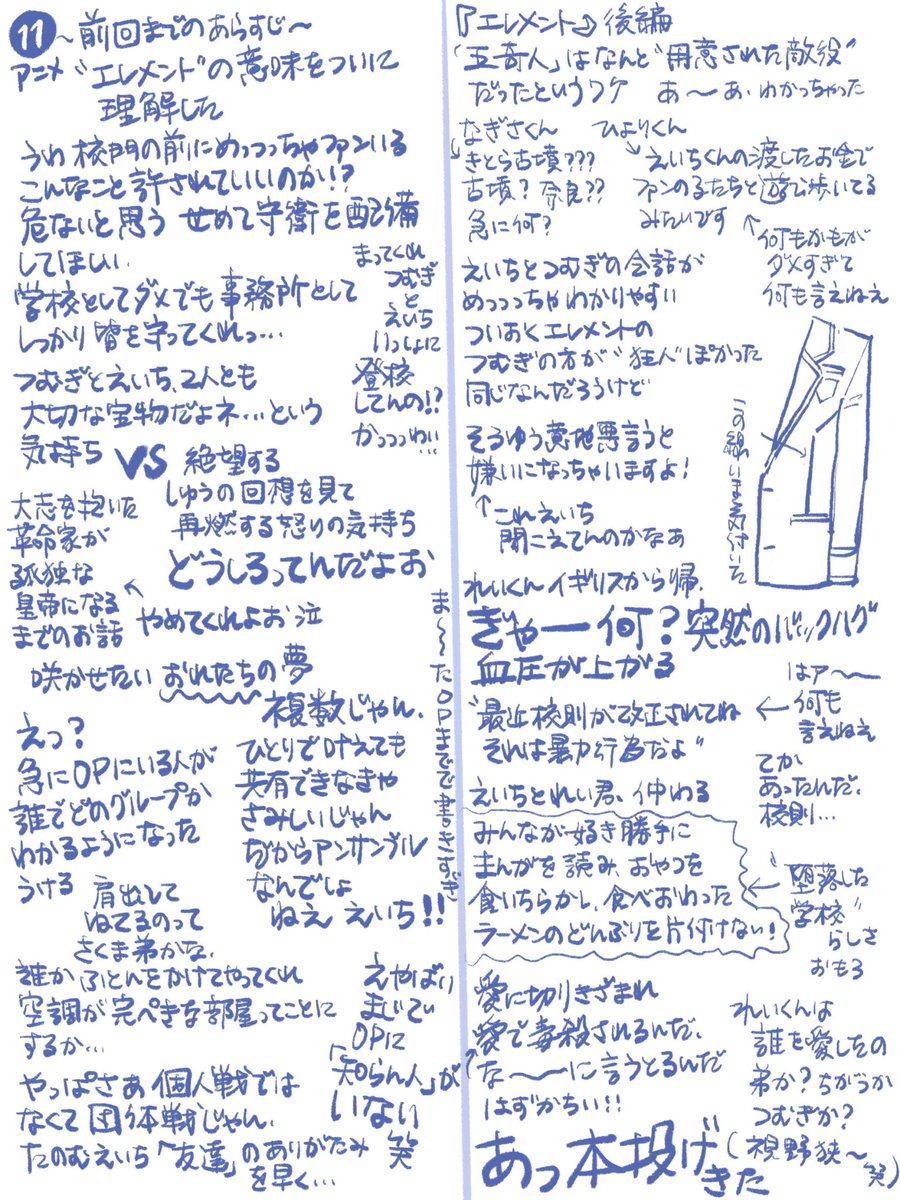 11 ～前回までのあらすじ～
アニメ"エレメント"の意味をついに
理解した
うわ 校門の前にめっっっちゃファンいる
こんなこと許されていいのか!?
危ないと思う せめて守衛を配備
してほしい.
学校としてダメでも事務所として
しっかり皆を守ってくれっ…
まってくれ
つむぎ
と
えいち
いっしょに
登校
してんの!?
かっっっわい…
つむぎとえいち、2人とも
大切な宝物だよネ…という
気持ち
VS 絶望する
しゅうの回想を見て
再燃する怒りの気持ち
どうしろってんだよお
大志を抱いた
革命家が
孤独な
皇帝になる
までのお話
← やめてくれよお 泣
咲かせたい おれたちの夢
複数じゃん.
ひとりで叶えても
共有できなきゃ
さみしいじゃん
だからアンサンブル
なんでしょ
ねえ えいち!!
ま～～たOPまでで書きすぎ
えっ?
急にOPにいる人が
誰でどのグループか
わかるようになった
うける
肩出して
ねてるのって
さくま弟かな.
誰か ふとんをかけてやってくれ
空調が完ぺきな部屋ってことに
するか…
えやばい
まじでい
OPに
「知らん人」が
いない
笑
やっぱさあ 個人戦では
なくて団体戦じゃん.
たのむえいち「友達」のありがたみ
を早く…
『エレメント』後編
「五奇人」はなんと"用意された敵役"
だったというワケ あ～あ.わかっちゃった
なぎさくん
きとら古墳???
古墳? 奈良??
急に何?
ひよりくん
えいちくんの渡したお金で
ファンの子たちと遊び歩いてる
みたいです
↑何もかもが
ダメすぎて
何も言えねえ
えいちとつむぎの会話が
めっっっちゃわかりやすい
ついおくエレメントの
つむぎの方が"狂人"ぽかった
同じなんだろうけど
この線いま気付いた
そうゆう意地悪言うと
嫌いになっちゃいますよ!
↑これえいち
聞こえてんのかなぁ
れいくんイギリスから帰.
ぎゃー何?突然のバックハグ
血圧が上がる
"最近校則が改正されてね
それは暴力行為だよ"
← はァ～～
何も
言えねえ
てか
あったんだ.
校則…
えいちとれい君、仲わる
みんなが好き勝手に
まんがを読み、おやつを
食いちらかし、食べおわった
ラーメンのどんぶりを片付けない!
← "堕落した
学校"
らしさ
おもろ
愛に切りきざまれ
愛で毒殺されるんだ.
な～～に言うとるんだ
はずかちい!!
れいくんは
誰を愛したの
弟か? ちがうか
つむぎか?
(視野狭～笑)
あっ本投げ
きた